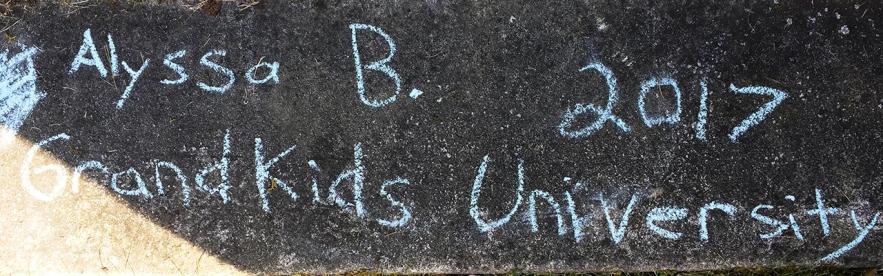 Alyssa B. 2017
Grandkids University